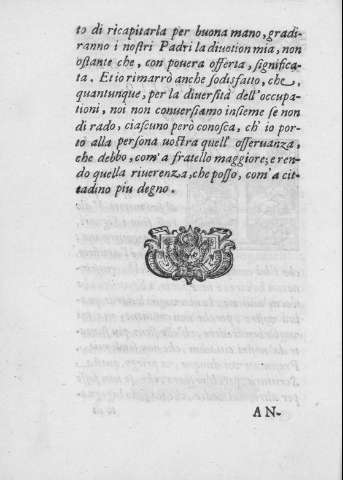 to di ricapitarla per buona mano, gradi-
ranno i nostri Padri la diuotion mia, non
ostante che, con pouera offerta, significa-
ta. Et io rimarrò anche sodisfatto, che,
quantunque, per la diuersità dell'occupa-
tioni, noi non conuersiamo insieme se non
di rado, ciascuno però conosca, ch'io por-
to alla persona uostra quell'osseruanza,
che debbo, com'a fratello maggiore; e ren-
do quella riuerenza, che posso, com'a cit-
tadino piu degno.
AN-